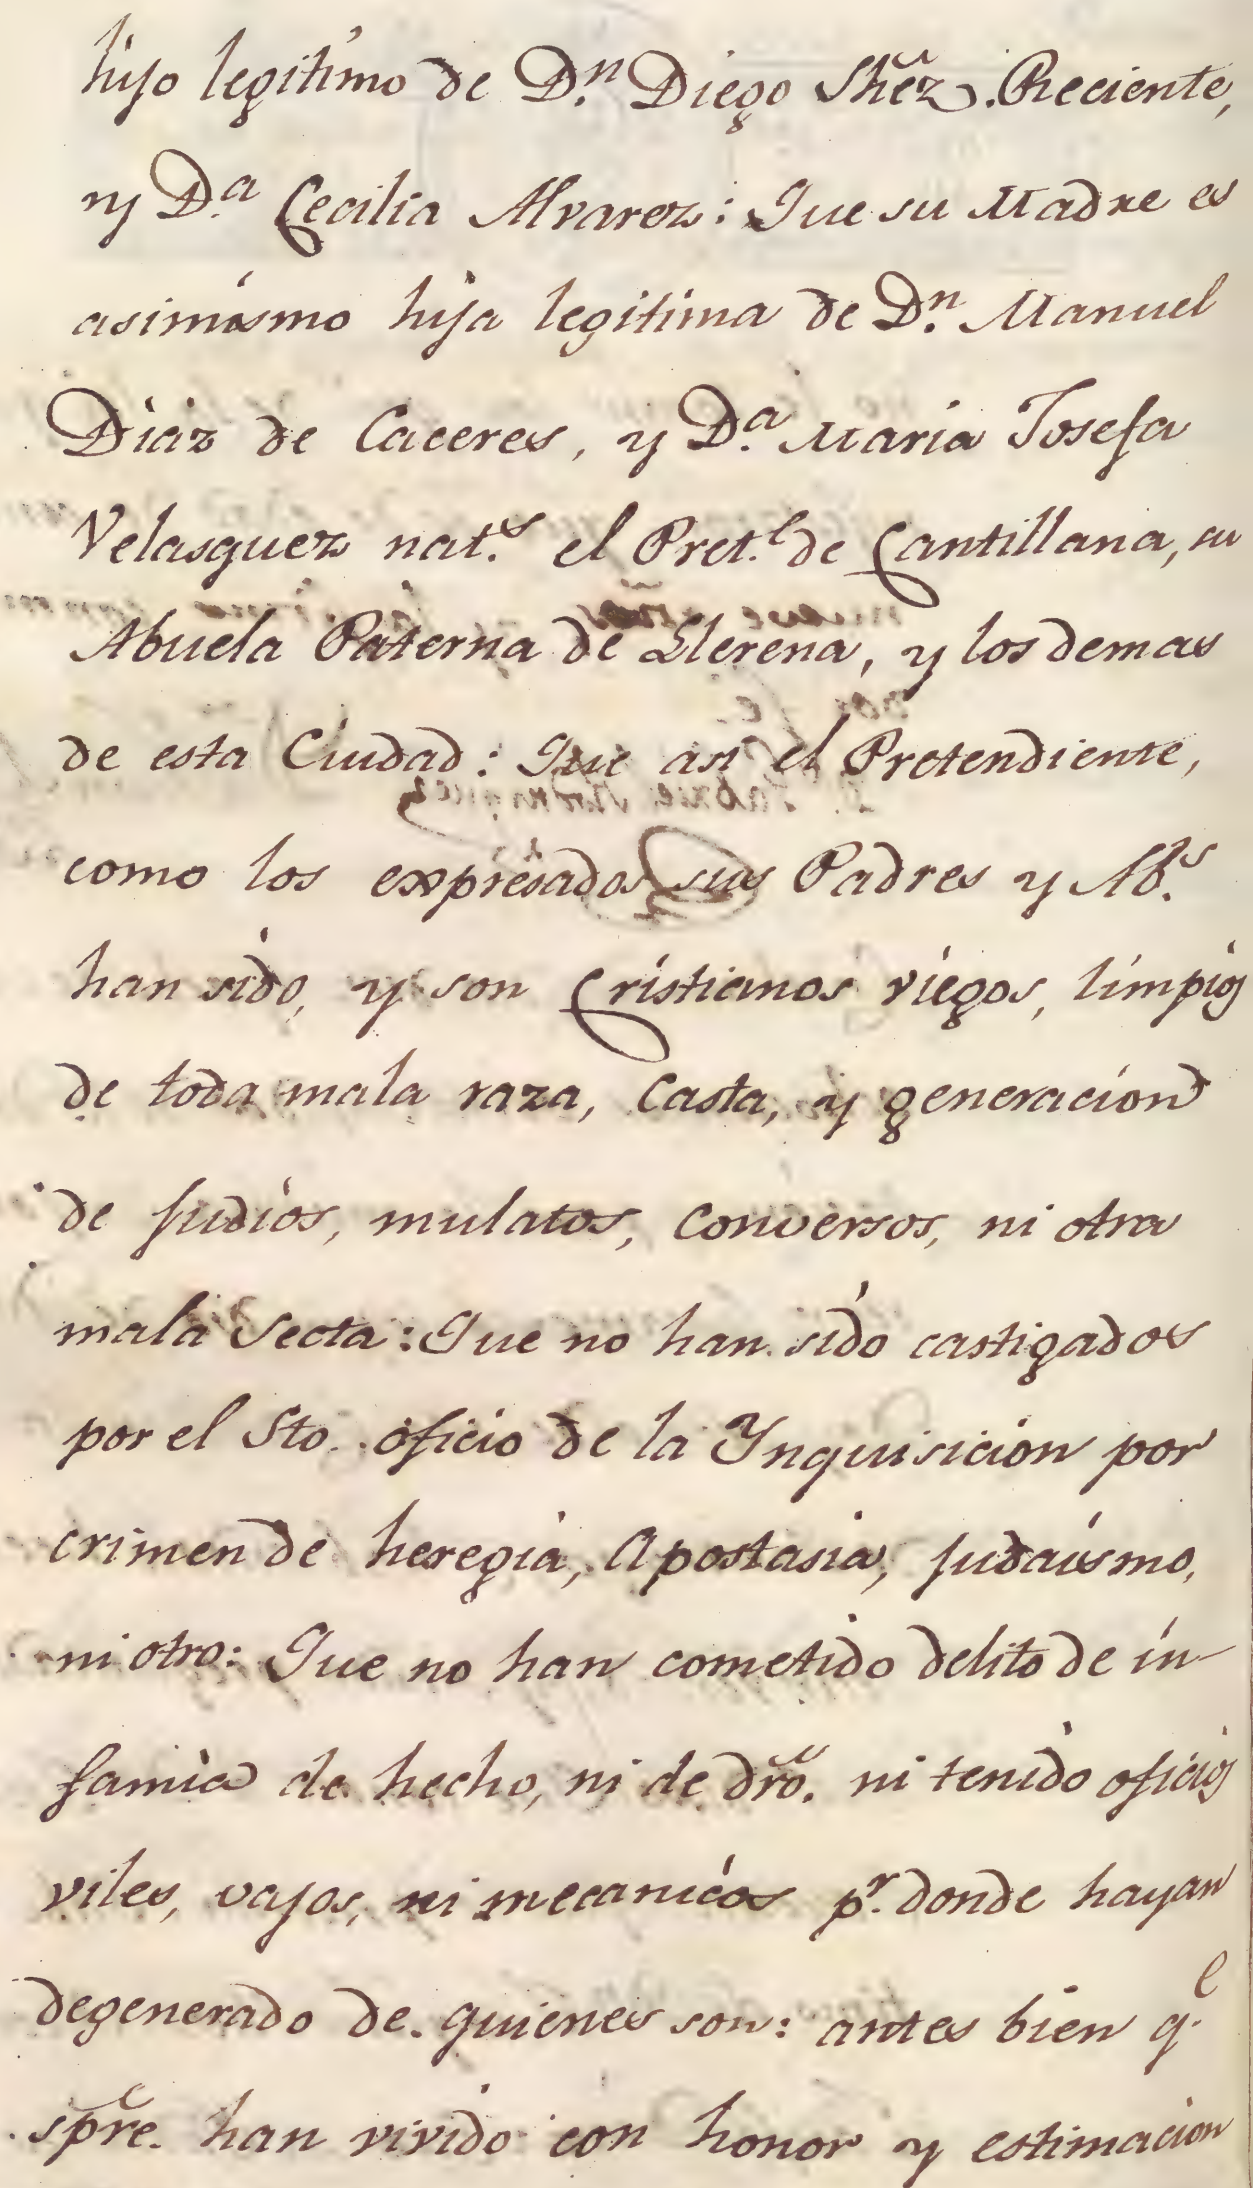 hijo legitimo de D.n Diego Shẽz. Reciente,
y D.a Cecilia Alvarez: Que su Madre es
asimismo hija legitima de D.n Manuel
Diaz de Caceres, y D.a Maria Josefa
Velasquez nat.s el Pret.e de Cantillana, su
Abuela Paterna de Llerena, y los demas
de esta Ciudad: Que asi el Pretendiente,
como los expresados sus Padres y Ab.s
han sido, y son Cristianos viegos, limpios
de toda mala raza, Casta, y generacion
de Judios, mulatos, Conversos, ni otra
mala Secta: Que no han sido castigados
por el Sto. oficio de la Ynquisicion por
crimen de heregia, Apostasia, Judaismo,
ni otro: Que no han cometido delito de in-
famia de hecho, ni de dr̃o. ni tenido oficios
viles, vajos, ni mecanicos p.r donde hayan
degenerado de quienes son: antes bien q.e
sp̃re. han vivido con honor y estimacion